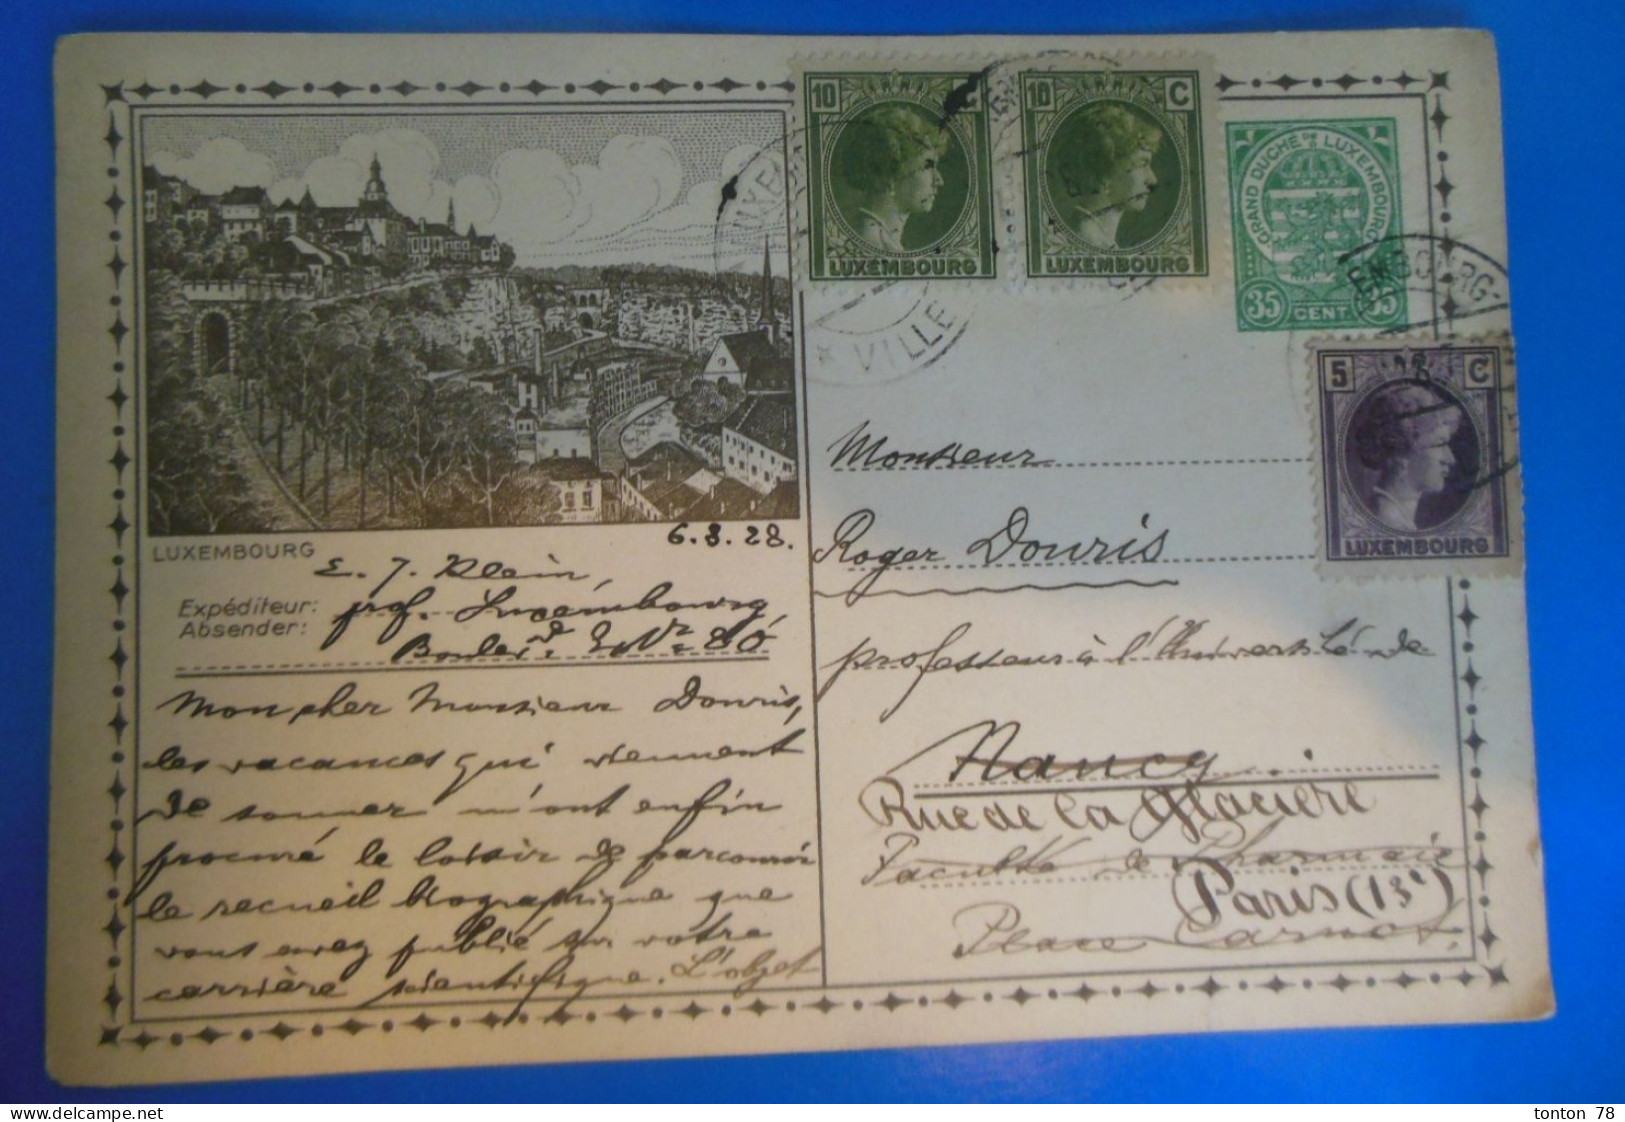 10 C
LUXEMBOURG
10 C
LUXEMBOURG
GRAND DUCHE DE LUXEMBOURG
35 CENT. 35
5 C
LUXEMBOURG
VILLE
EMBOURG-
LUXEMBOURG
6.8.28.
E. J. Klein,
Expéditeur: prof. Luxembourg
Absender:
Boulev.d 80
Mon cher Monsieur Douris,
les vacances qui viennent
de sonner m'ont enfin
procuré le loisir de parcourir
le recueil biographique que
vous avez publié sur votre
carrière scientifique. L'objet
Monsieur
Roger Douris
professeur à l'Université de
Nancy
Rue de la Glacière
Faculté de Pharmacie
Paris (13e)
Place Carnot.
www.delcampe.net
tonton 78